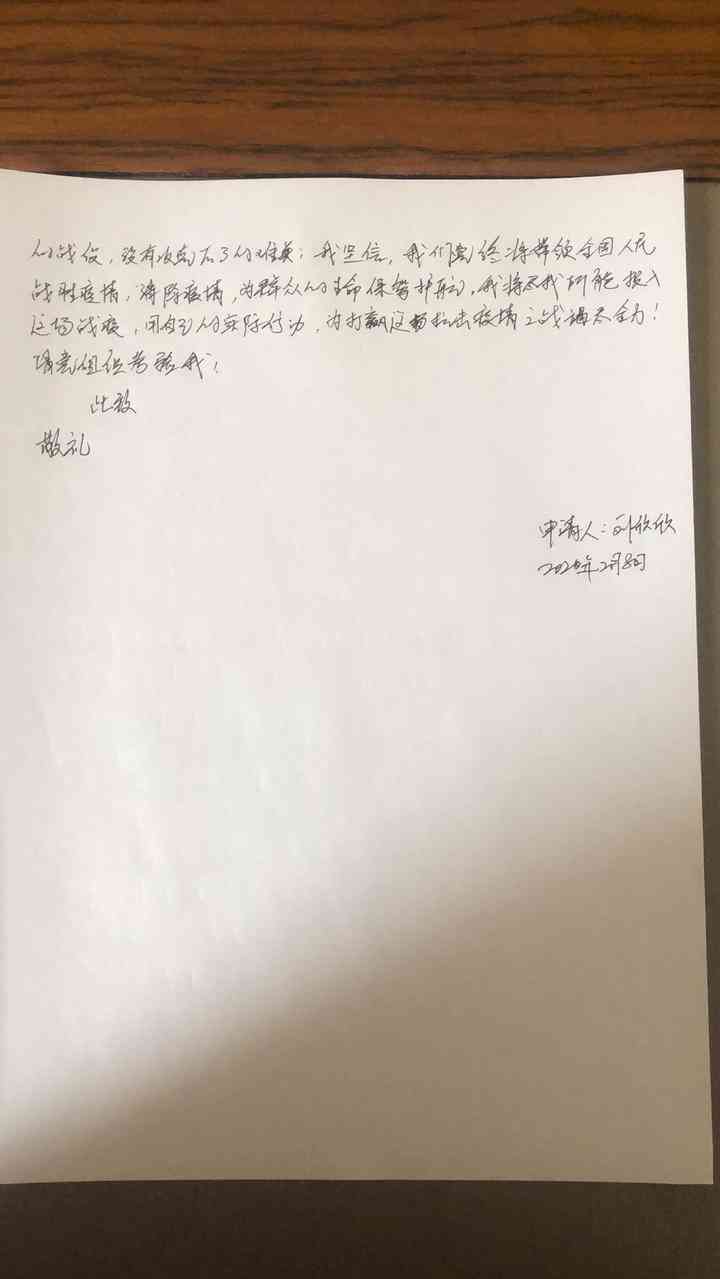 的战役，没有攻克不了的难关；我坚信，我们党终将带领全国人民
战胜疫情，消除疫情，为群众的生命保驾护航，我将尽我所能投入
这场战疫，用自己的实际行动，为打赢这场抗击疫情之战竭尽全力！
请党组织考验我！
此致
敬礼
申请人：刘欣欣
2020年2月8日